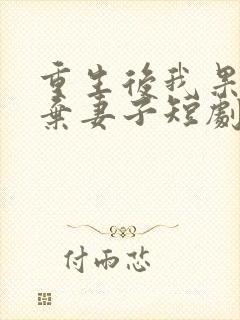 重生後我果
棄妻子短劇
付雨恣